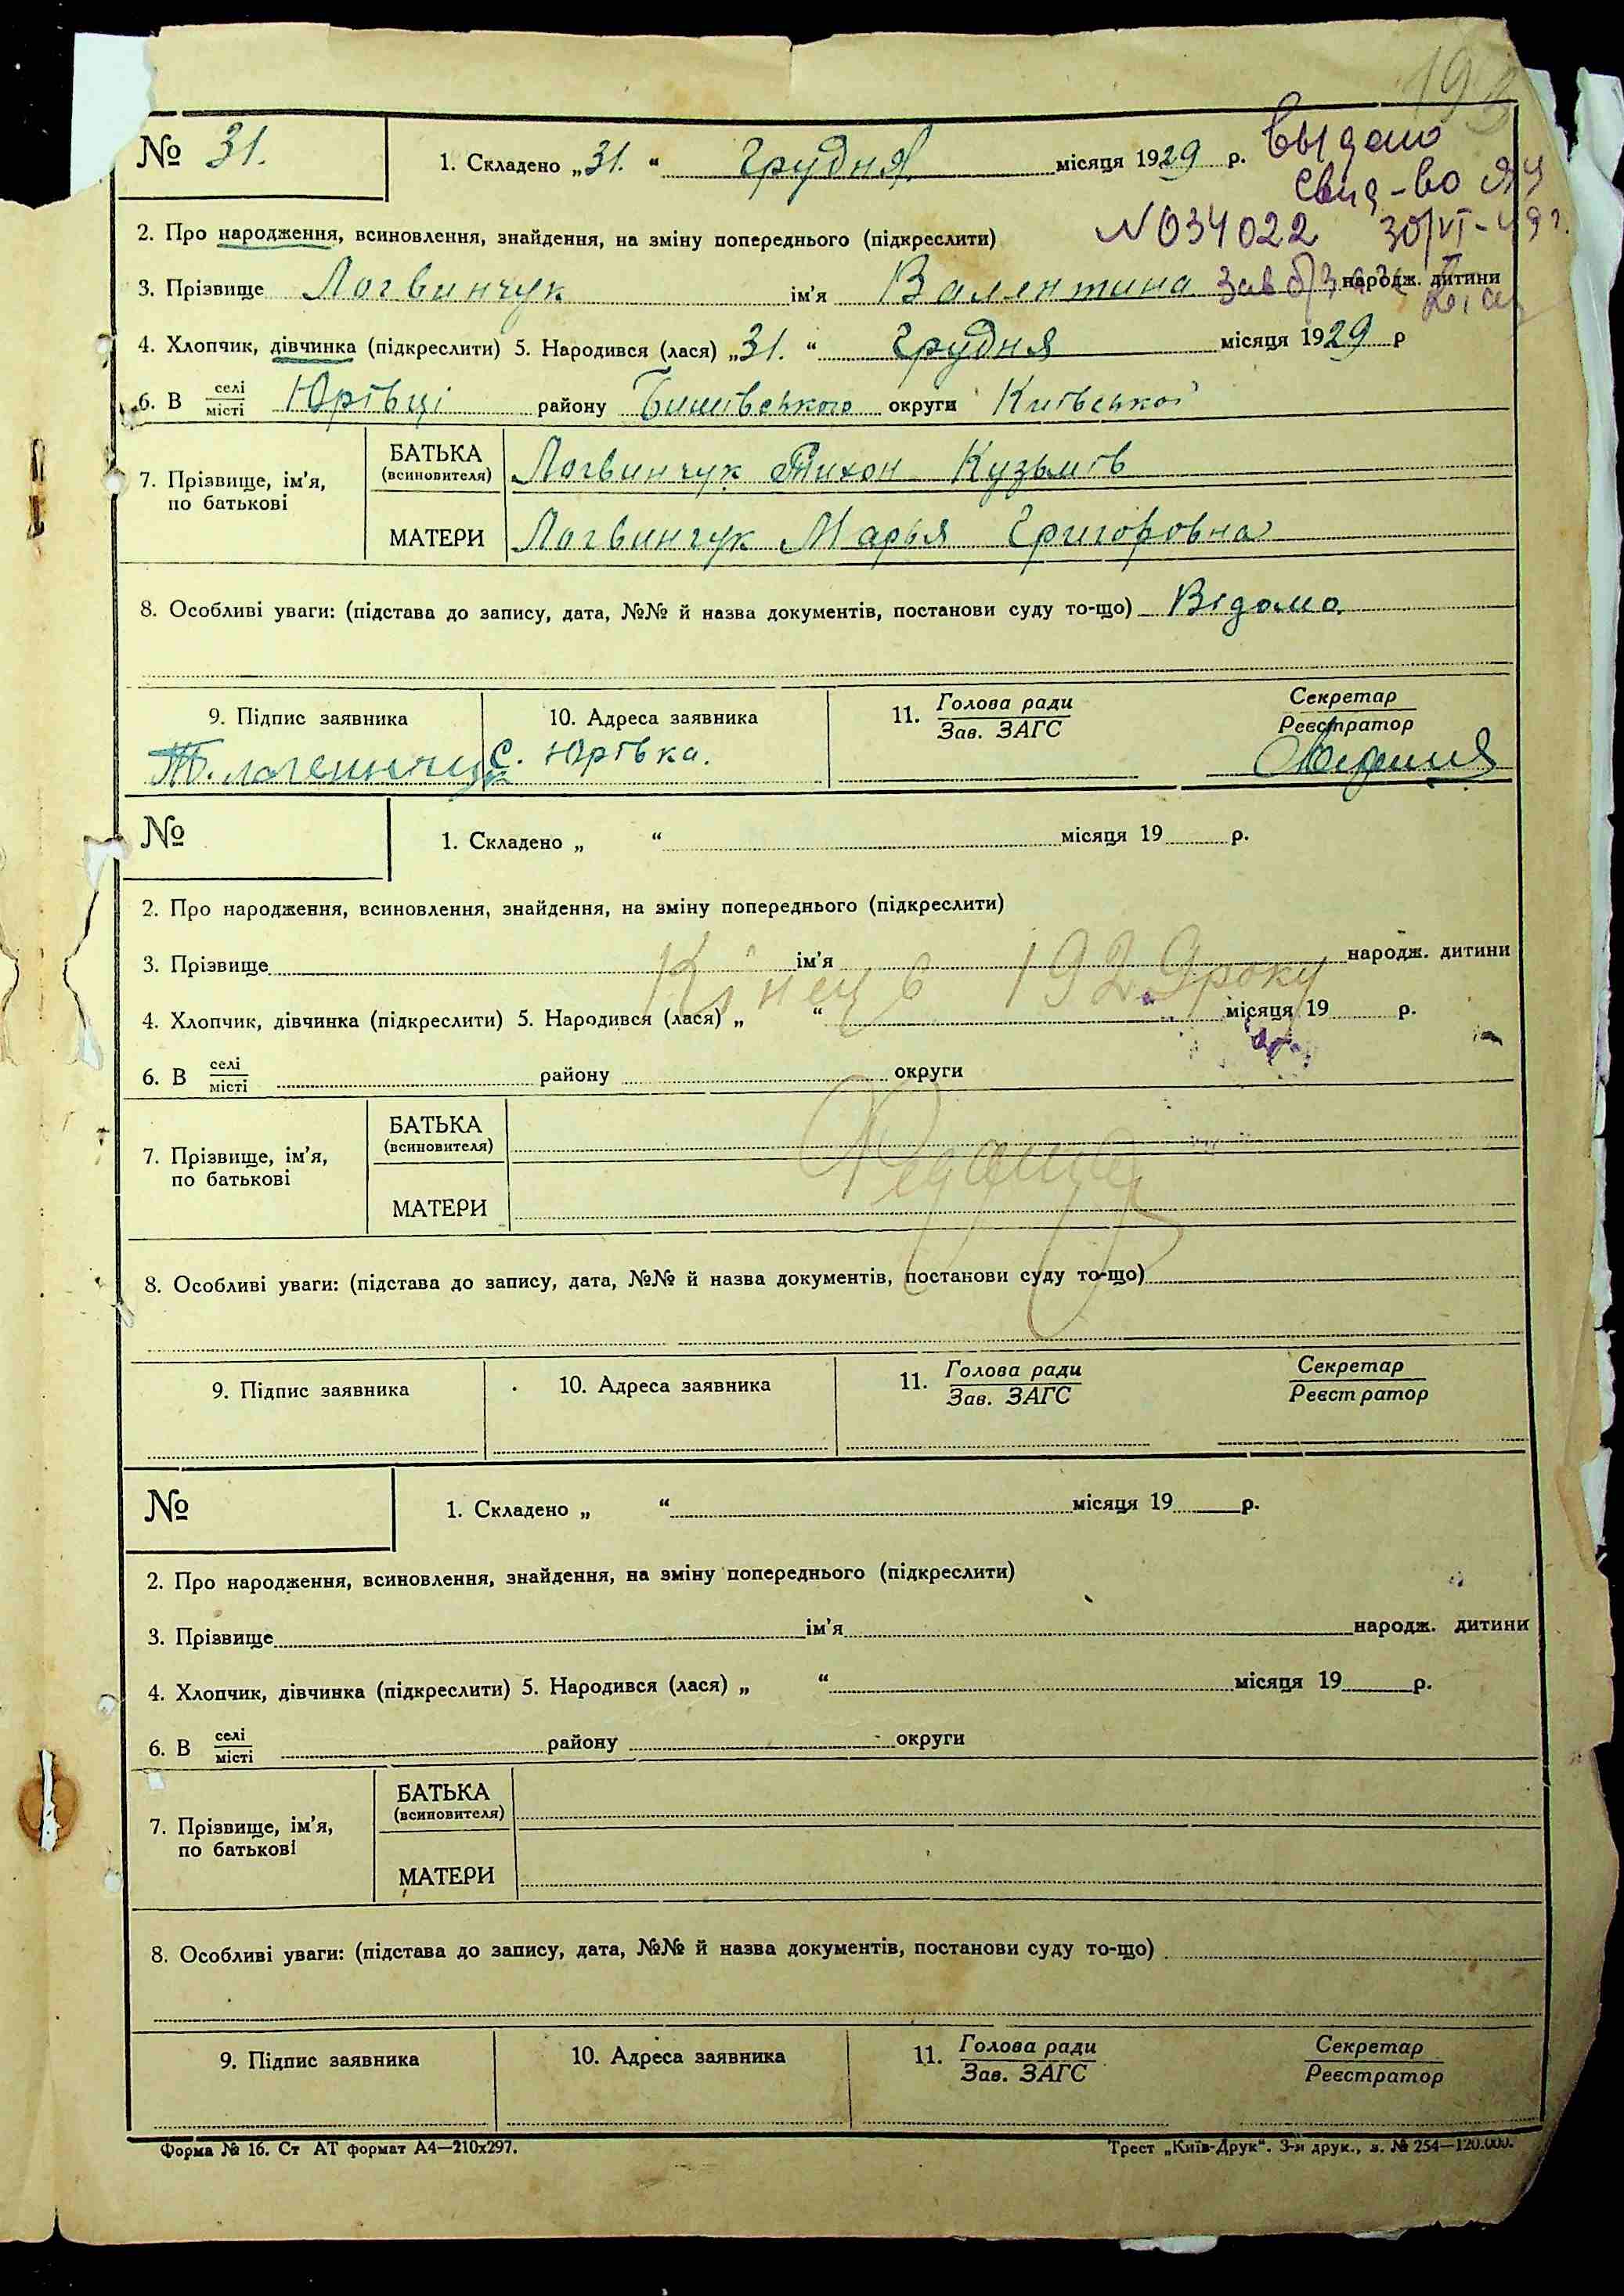 № 31. 1. Складено „31.“ Грудня місяця 1929 р. Выдано
свид-во ЯЧ
2. Про народження, всиновлення, знайдення, на зміну попереднього (підкреслити) N 034022 30/VI-49 г.
3. Прізвище Логвинчук ім'я Валентина народж. дитини
4. Хлопчик, дівчинка (підкреслити) 5. Народився (лася) „31.“ Грудня місяця 1929 р
6. В селі/місті Юрівці району Бишівського округи Київської
7. Прізвище, ім'я, по батькові
БАТЬКА (всиновителя) Логвинчук Тихон Кузьмів
МАТЕРИ Логвинчук Марья Григоровна
8. Особливі уваги: (підстава до запису, дата, №№ й назва документів, постанови суду то-що) Відомо
9. Підпис заявника 10. Адреса заявника 11. Голова ради/Зав. ЗАГС Секретар/Реєстратор
Т. Логвинчук с. Юрівка.
№ 1. Складено „ “ місяця 19 р.
2. Про народження, всиновлення, знайдення, на зміну попереднього (підкреслити)
3. Прізвище ім'я народж. дитини
Кінець 1929 року
4. Хлопчик, дівчинка (підкреслити) 5. Народився (лася) „ “ місяця 19 р.
6. В селі/місті району округи
7. Прізвище, ім'я, по батькові
БАТЬКА (всиновителя)
МАТЕРИ
8. Особливі уваги: (підстава до запису, дата, №№ й назва документів, постанови суду то-що)
9. Підпис заявника 10. Адреса заявника 11. Голова ради/Зав. ЗАГС Секретар/Реєстратор
№ 1. Складено „ “ місяця 19 р.
2. Про народження, всиновлення, знайдення, на зміну попереднього (підкреслити)
3. Прізвище ім'я народж. дитини
4. Хлопчик, дівчинка (підкреслити) 5. Народився (лася) „ “ місяця 19 р.
6. В селі/місті району округи
7. Прізвище, ім'я, по батькові
БАТЬКА (всиновителя)
МАТЕРИ
8. Особливі уваги: (підстава до запису, дата, №№ й назва документів, постанови суду то-що)
9. Підпис заявника 10. Адреса заявника 11. Голова ради/Зав. ЗАГС Секретар/Реєстратор
Форма № 16. Ст АТ формат А4—210х297. Трест „Київ-Друк“. 3-я друк., з. № 254—120.000.